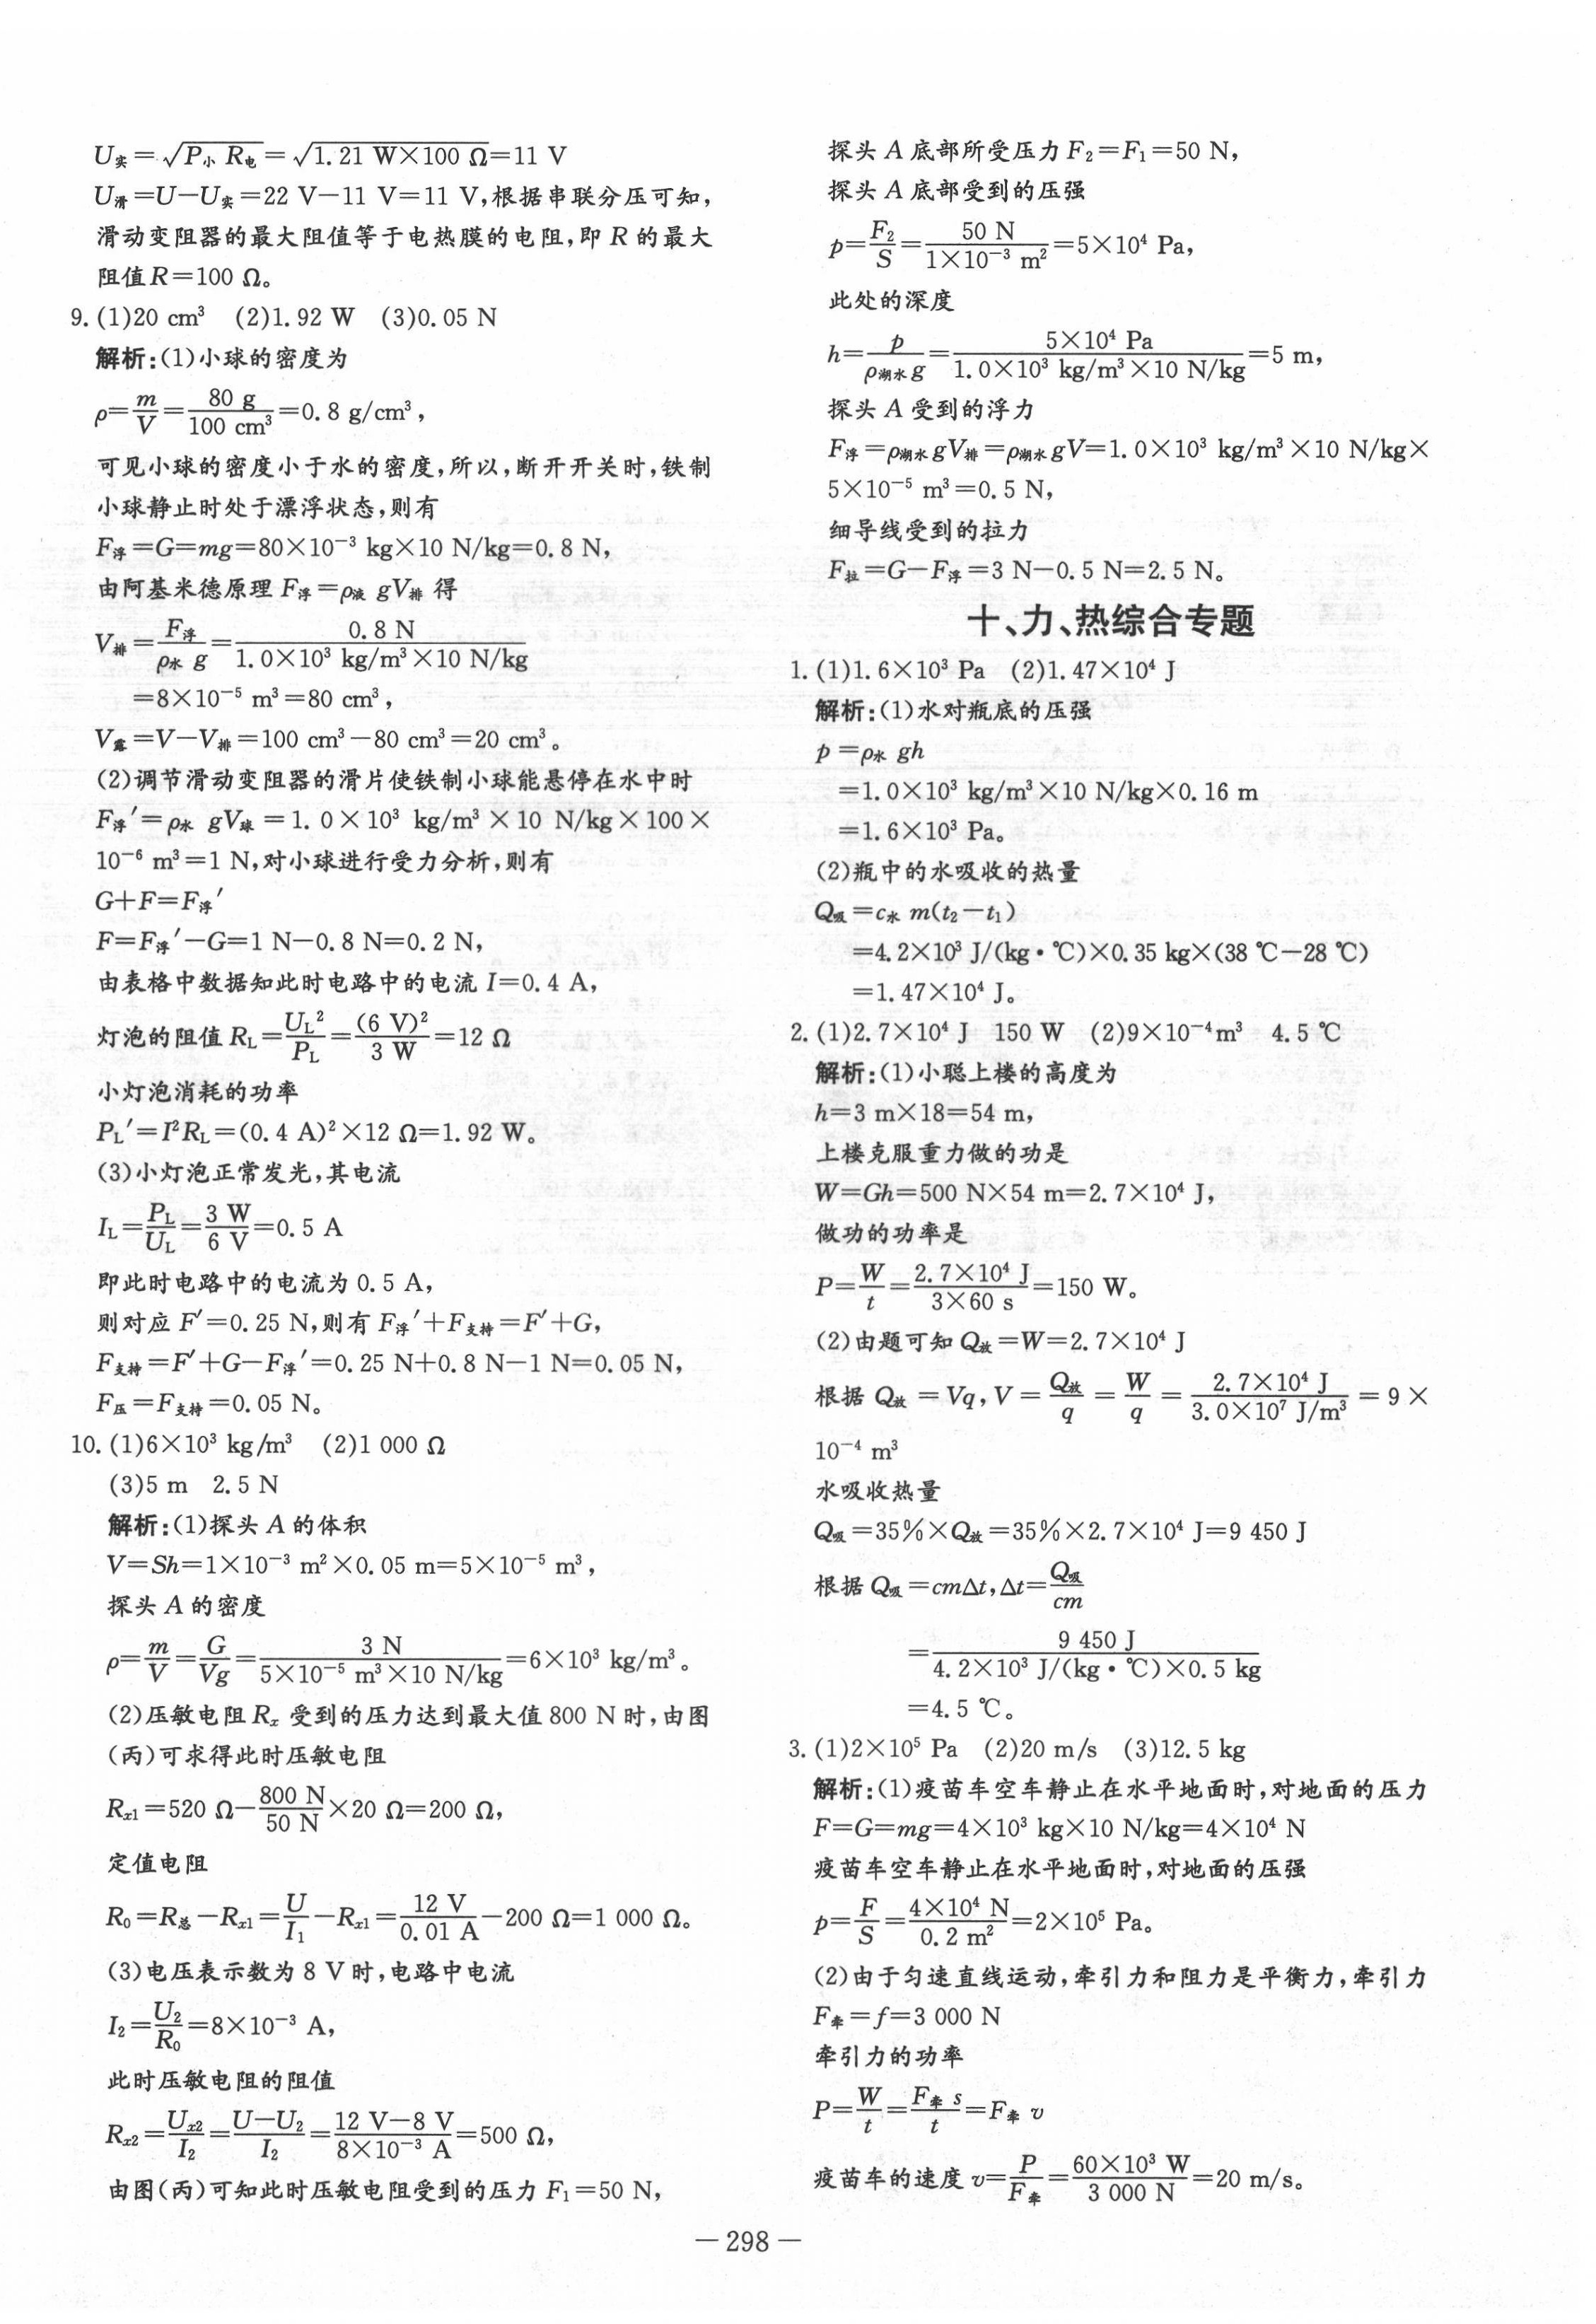 U实=√(P小 R电)=√(1.21 W×100 Ω)=11 V
U滑=U−U实=22 V−11 V=11 V,根据串联分压可知,
滑动变阻器的最大阻值等于电热膜的电阻,即 R 的最大
阻值R=100 Ω。
9. (1)20 cm³ (2)1.92 W (3)0.05 N
解析:(1)小球的密度为
ρ=m/V=80 g/100 cm³=0.8 g/cm³,
可见小球的密度小于水的密度,所以,断开开关时,铁制
小球静止时处于漂浮状态,则有
F浮=G=mg=80×10⁻³ kg×10 N/kg=0.8 N,
由阿基米德原理 F浮=ρ液 gV排 得
V排=F浮/(ρ水 g)=0.8 N/(1.0×10³ kg/m³×10 N/kg)
=8×10⁻⁵ m³=80 cm³,
V露=V−V排=100 cm³−80 cm³=20 cm³。
(2)调节滑动变阻器的滑片使铁制小球能悬停在水中时
F浮′=ρ水 gV球=1.0×10³ kg/m³×10 N/kg×100×
10⁻⁶ m³=1 N,对小球进行受力分析,则有
G+F=F浮′
F=F浮′−G=1 N−0.8 N=0.2 N,
由表格中数据知此时电路中的电流 I=0.4 A,
灯泡的阻值 R_L=U_L²/P_L=(6 V)²/3 W=12 Ω
小灯泡消耗的功率
P_L′=I²R_L=(0.4 A)²×12 Ω=1.92 W。
(3)小灯泡正常发光,其电流
I_L=P_L/U_L=3 W/6 V=0.5 A
即此时电路中的电流为 0.5 A,
则对应 F′=0.25 N,则有 F浮′+F支持=F′+G,
F支持=F′+G−F浮′=0.25 N+0.8 N−1 N=0.05 N,
F压=F支持=0.05 N。
10. (1)6×10³ kg/m³ (2)1 000 Ω
(3)5 m 2.5 N
解析:(1)探头 A 的体积
V=Sh=1×10⁻³ m²×0.05 m=5×10⁻⁵ m³,
探头 A 的密度
ρ=m/V=G/(Vg)=3 N/(5×10⁻⁵ m³×10 N/kg)=6×10³ kg/m³。
(2)压敏电阻 Rₓ 受到的压力达到最大值 800 N 时,由图
(丙)可求得此时压敏电阻
Rₓ₁=520 Ω−800 N/50 N×20 Ω=200 Ω,
定值电阻
R₀=R总−Rₓ₁=U/I₁−Rₓ₁=12 V/0.01 A−200 Ω=1 000 Ω。
(3)电压表示数为 8 V 时,电路中电流
I₂=U₂/R₀=8×10⁻³ A,
此时压敏电阻的阻值
Rₓ₂=Uₓ₂/I₂=(U−U₂)/I₂=(12 V−8 V)/(8×10⁻³ A)=500 Ω,
由图(丙)可知此时压敏电阻受到的压力 F₁=50 N,
探头 A 底部所受压力 F₂=F₁=50 N,
探头 A 底部受到的压强
p=F₂/S=50 N/(1×10⁻³ m²)=5×10⁴ Pa,
此处的深度
h=p/(ρ湖水 g)=5×10⁴ Pa/(1.0×10³ kg/m³×10 N/kg)=5 m,
探头 A 受到的浮力
F浮=ρ湖水 gV排=ρ湖水 gV=1.0×10³ kg/m³×10 N/kg×
5×10⁻⁵ m³=0.5 N,
细导线受到的拉力
F拉=G−F浮=3 N−0.5 N=2.5 N。
十、力、热综合专题
1. (1)1.6×10³ Pa (2)1.47×10⁴ J
解析:(1)水对瓶底的压强
p=ρ水 gh
=1.0×10³ kg/m³×10 N/kg×0.16 m
=1.6×10³ Pa。
(2)瓶中的水吸收的热量
Q吸=c水 m(t₂−t₁)
=4.2×10³ J/(kg·℃)×0.35 kg×(38 ℃−28 ℃)
=1.47×10⁴ J。
2. (1)2.7×10⁴ J 150 W (2)9×10⁻⁴m³ 4.5 ℃
解析:(1)小聪上楼的高度为
h=3 m×18=54 m,
上楼克服重力做的功是
W=Gh=500 N×54 m=2.7×10⁴ J,
做功的功率是
P=W/t=2.7×10⁴ J/(3×60 s)=150 W。
(2)由题可知 Q放=W=2.7×10⁴ J
根据 Q放=Vq,V=Q放/q=W/q=2.7×10⁴ J/(3.0×10⁷ J/m³)=9×
10⁻⁴ m³
水吸收热量
Q吸=35%×Q放=35%×2.7×10⁴ J=9 450 J
根据 Q吸=cmΔt,Δt=Q吸/cm
=9 450 J/(4.2×10³ J/(kg·℃)×0.5 kg)
=4.5 ℃。
3. (1)2×10⁵ Pa (2)20 m/s (3)12.5 kg
解析:(1)疫苗车空车静止在水平地面时,对地面的压力
F=G=mg=4×10³ kg×10 N/kg=4×10⁴ N
疫苗车空车静止在水平地面时,对地面的压强
p=F/S=4×10⁴ N/0.2 m²=2×10⁵ Pa。
(2)由于匀速直线运动,牵引力和阻力是平衡力,牵引力
F牵=f=3 000 N
牵引力的功率
P=W/t=F牵 s/t=F牵 v
疫苗车的速度 v=P/F牵=60×10³ W/3 000 N=20 m/s。
— 298 —